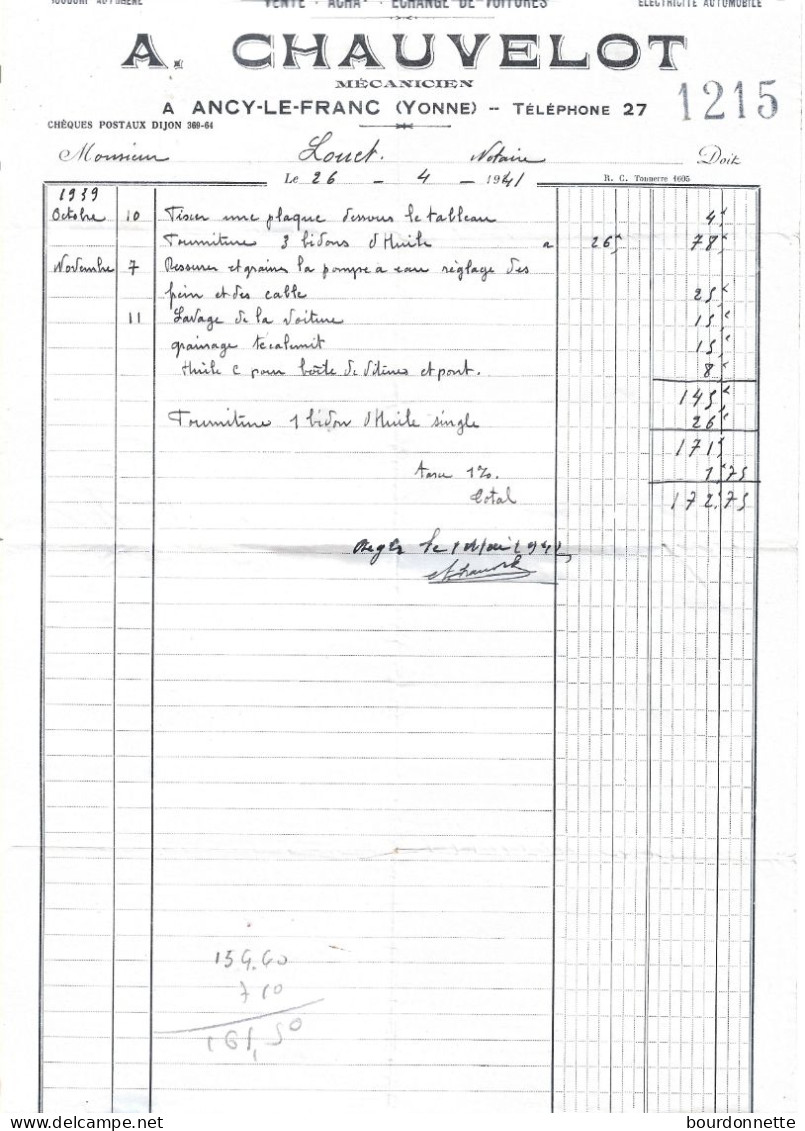 VENTE - ACHAT - ÉCHANGE DE VOITURES
ÉLECTRICITÉ AUTOMOBILE
A. CHAUVELOT
MÉCANICIEN
A ANCY-LE-FRANC (YONNE) -- TÉLÉPHONE 27
1215
CHÈQUES POSTAUX DIJON 369-64
Monsieur Louet. Notaire Doit
Le 26 - 4 - 1941
R. C. Tonnerre 1695
1939
Octobre 10 Fixer une plaque dessous le tableau 4
Fourniture 3 bidons d'Huile a 26 78
Novembre 7 Resserer et graisser la pompe a eau réglage des
frein et des cable 25
11 Lavage de la voiture 15
graissage tecalemit 15
Huile C pour boîte de vitesses et pont. 8
145
Fourniture 1 bidon d'Huile single 26
171
taxe 1%. 1,75
Total 172,75
Réglé le 1 Mai 1941
154.40
7 10
161,50
bourdonnette